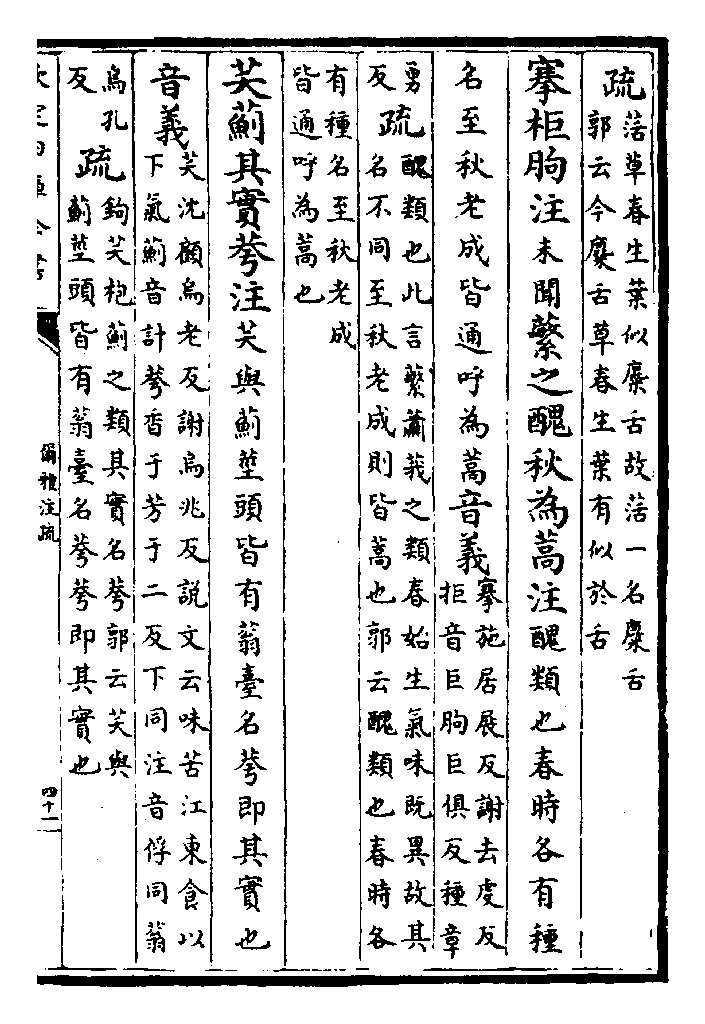 疏
萿草春生葉似麋舌故萿一名麋舌
郭云今麋舌草春生葉有似於舌
搴柜朐注未聞蘩之醜秋為蒿注醜類也春時各有種
名至秋老成皆通呼為蒿音義
搴施居展反謝去虔反
拒音巨朐巨俱反種章
勇
反
疏
醜類也此言蘩蕭莪之類春始生氣味既異故其
名不同至秋老成則皆蒿也郭云醜類也春時各
有種名至秋老成
皆通呼為蒿也
芺薊其實荂注芺與薊莖頭皆有蓊臺名荂即其實也
音義
芺沈顧烏老反謝烏兆反說文云味苦江東食以
下氣薊音計荂香于芳于二反下同注音俘同蓊
烏孔
反
疏
鉤芺枹薊之類其實名荂郭云芺與
薊莖頭皆有蓊臺名荂荂即其實也
爾雅注疏
四十一